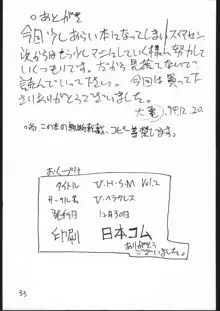 ○あとがき
今回少しあらい本になってしまいスイマセン
次からはもう少しマニアにしていく様に努力して
いくつもりです。だから見捨てないで
読んでいって下さい。今回は買って下
さいありがとうございました。
'94.12.20.
この本の無断転載、コピー等禁じます。
おくづけ
タイトル V・H・S・M Vol.2
サークル名 V・ヘラクレス
発行日 12月30日
印刷 日本コム
ありがとう
ございました。
33